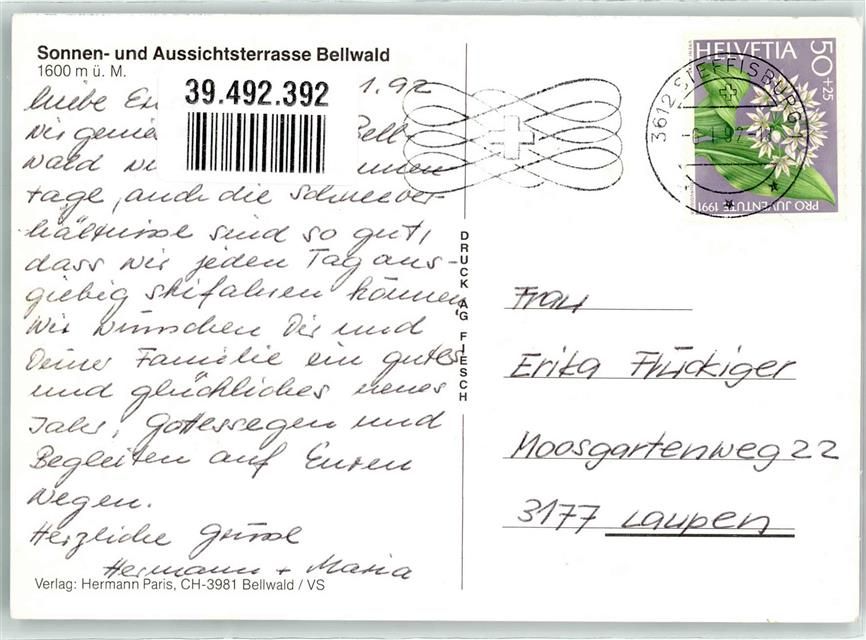 Sonnen- und Aussichtsterrasse Bellwald
1600 m ü. M.
39.492.392
1.92
Liebe
Wir
wald
tage, auch die Schneever-
hältnisse sind so gut,
dass wir jeden Tag aus-
giebig skifahren können.
Wir wünschen Dir und
Deiner Familie ein gutes
und glückliches neues
Jahr, Gottessegen und
Begleiten auf Euren
Wegen.
Herzliche Grüsse
Hermann + Maria
Verlag: Hermann Paris, CH-3981 Bellwald / VS
DRUCK AG FIESCH
HELVETIA 50+25
PRO JUVENTUTE 1991
3612 STEFFISBURG 1
Frau
Erika Flückiger
Moosgartenweg 22
3177 Laupen